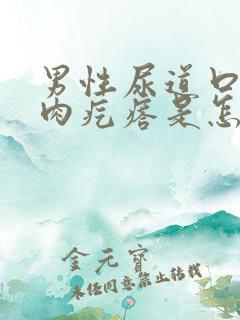 男性尿道口
肉疙瘩是怎
金元宝
未经同意禁止转载